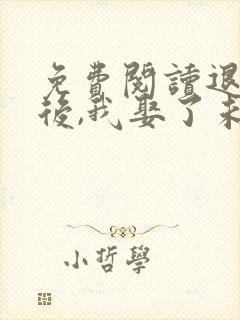 免費閱讀退
後,我娶了未
小哲學